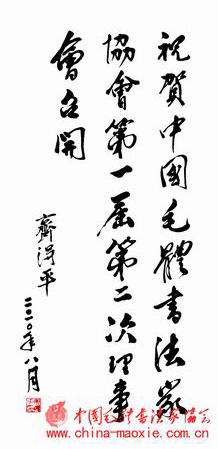 祝賀中國毛體書法家
協會第一届第二次理事
會召開
齊得平
二〇一〇年八月
中国毛体书法家协会
www.china-maoxie.com.cn